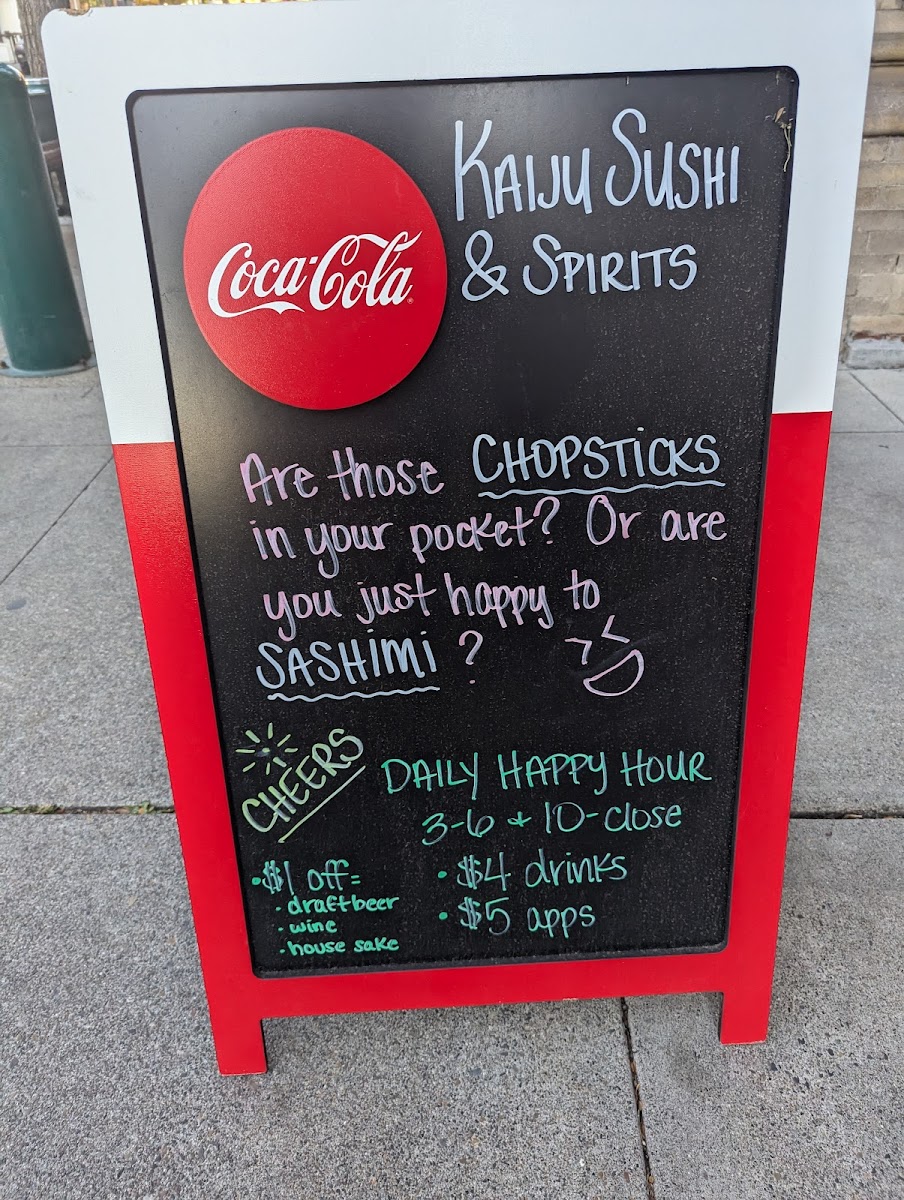 Coca-Cola
KAIJU SUSHI
& SPIRITS
Are those CHOPSTICKS
in your pocket? Or are
you just happy to
SASHIMI ?
CHEERS
DAILY HAPPY HOUR
3-6 + 10-close
• $1 off=
• draft beer
• wine
• house sake
• $4 drinks
• $5 apps